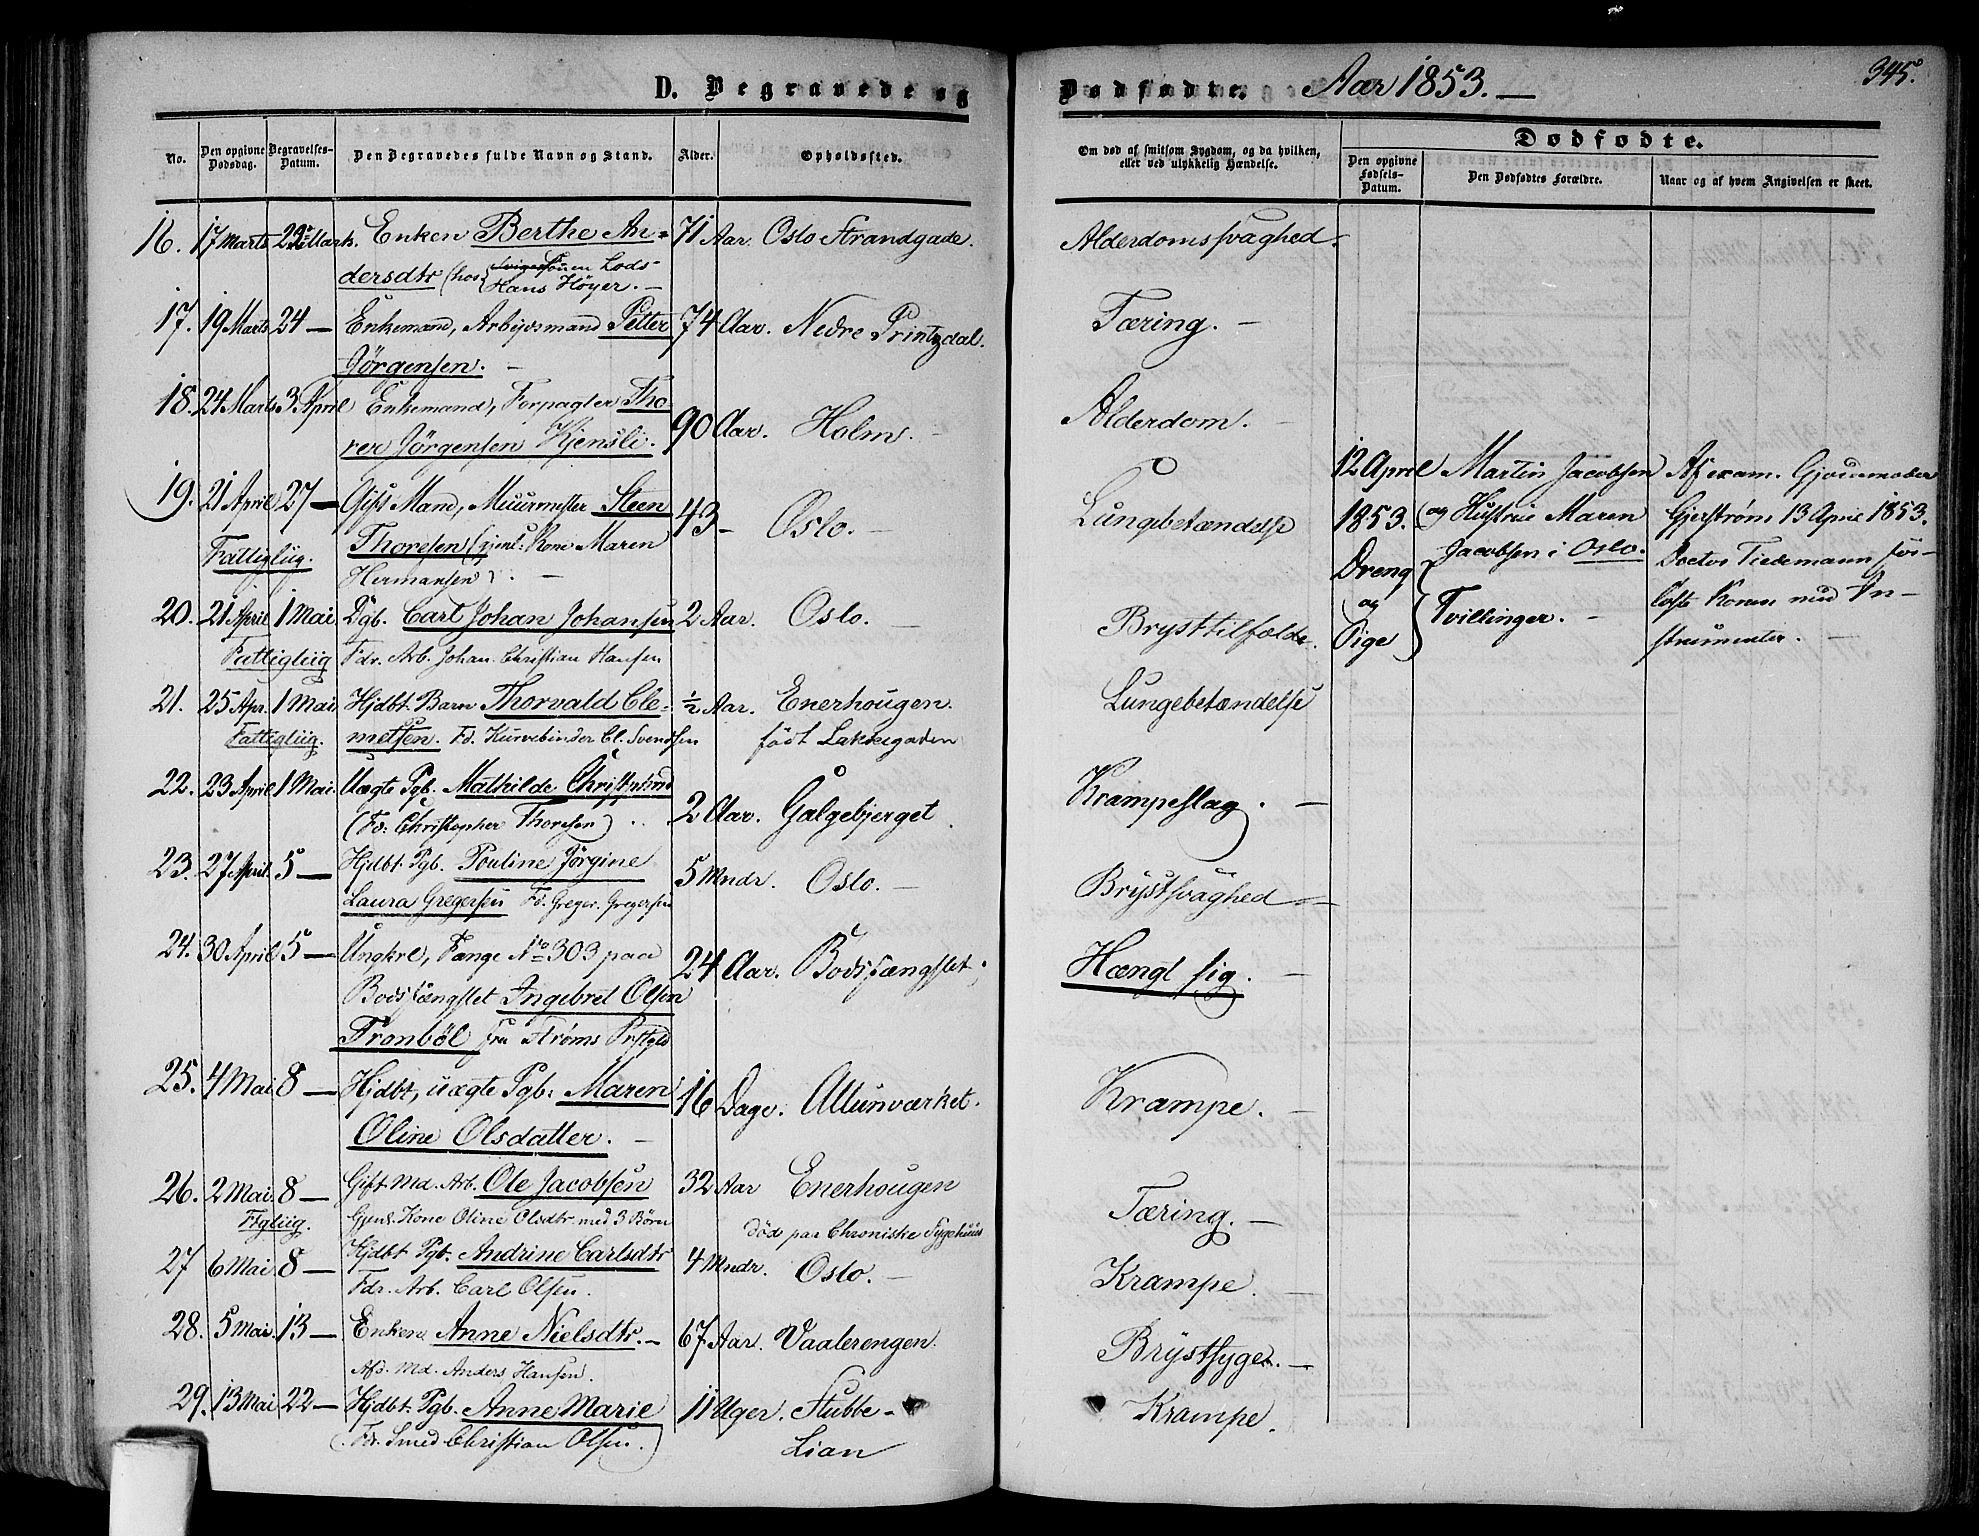 D. Begravede og Dødfødte. Aar 1853. — 345.
No. Den opgivne Dødsdag. Begravelses-Datum. Den Begravedes fulde Navn og Stand. Alder. Opholdssted. Om død af smitsom Sygdom, og da hvilken, eller ved ulykkelig Hændelse. Dødfødte. Den opgivne Fødsels-Datum. Den Dødfødtes Forældre. Naar og af hvem Angivelsen er skeet.
16. 17 Marts 23de Marts. Enken Berthe An- 71 Aar. Oslo Strandgade. Alderdomssvaghed.
dersdtr (hos Svigersönnen Lods
Hans Höyer. —
17. 19 Marts 24 — Enkemand, Arbeidsmand Petter 74 Aar. Nedre Printzdal. Tæring. —
Jörgensen. —
18. 24 Marts 3 April Enkemand, Forpagter Tho- 90 Aar. Holm. — Alderdom. —
rer Jörgensen Kjensli.
19. 21 April 27 — Gift Mand, Muurmester Steen 43 — Oslo. — Lungebetændelse
Fattigliig. Thoresen (gjenl. Kone Maren
Hermansen). —
12 April Martin Jacobsen Af exam. Gjordemoder
1853. og Hustrue Maren Gjerström 13 April 1853.
Dreng Jacobsen i Oslo. Doctor Tiedemann for-
og Tvillinger. — löste Konen med In-
Pige strumenter. —
20. 21 April 1 Mai Dgb. Carl Johan Johansen 2 Aar. Oslo. — Brysttilfælde.
Fattigliig Fdr. Arb. Johan Christian Hansen
21. 25 Apr. 1 Mai Hjdbt. Barn Thorvald Cle- ½ Aar. Enerhougen Lungebetændelse
Fattigliig. metsen. Fd. Kurvebinder Cl. Svendsen födt Lakkegaden
22. 23 April 1 Mai. Uægte Pgb. Mathilde 2 Aar. Galgebjerget. Krampeslag. —
(Fd: Christopher Thoresen)
23. 27 April. 5 — Hjdbt. Pgb. Pouline Jörgine 5 Mndr. Oslo. — Brystsvaghed —
Laura Gregersen Fd. Greger. Gregersen
24. 30 April 5 — Ungkrl, Fange No 303 paa 24 Aar. Bodsfængslet. Hængt sig. —
Bodsfængslet Ingebret Olsen
Tronböl fra Ströms Prstgld
25. 4 Mai 8 — Hjdbt, uægte Pgb. Maren 16 Dage. Allunværket. Krampe. —
Oline Olsdatter. —
26. 2 Mai. 8 — Gift Md. Arb. Ole Jacobsen 32 Aar Enerhougen Tæring. —
Ftgliig. Gjenl. Kone Oline Olsdtr. med 3 Börn död paa Chroniske Sygehuus
27 6 Mai. 8 — Hjdbt Pgb. Andrine Carlsdtr 4 Mndr. Oslo. — Krampe. —
Fdr. Arb. Carl Olsen.
28. 5 Mai. 13 — Enken Anne Nielsdtr. — 67 Aar. Vaalerengen. Brystsyge. —
Afd. Md. Anders Hansen.
29. 13 Mai 22 — Hjdbt. Pgb. Anne Marie 11 Uger. Stubbe- Krampe.
(Fdr. Smed Christian Olsen.) Lian